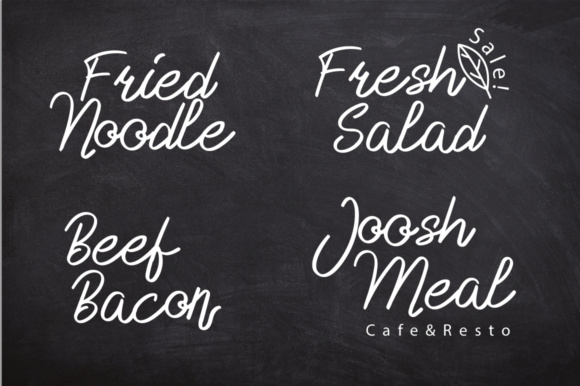 Fried
Noodle
Fresh
Sale!
Salad
Beef
Bacon
Joosh
Meal
Cafe&Resto